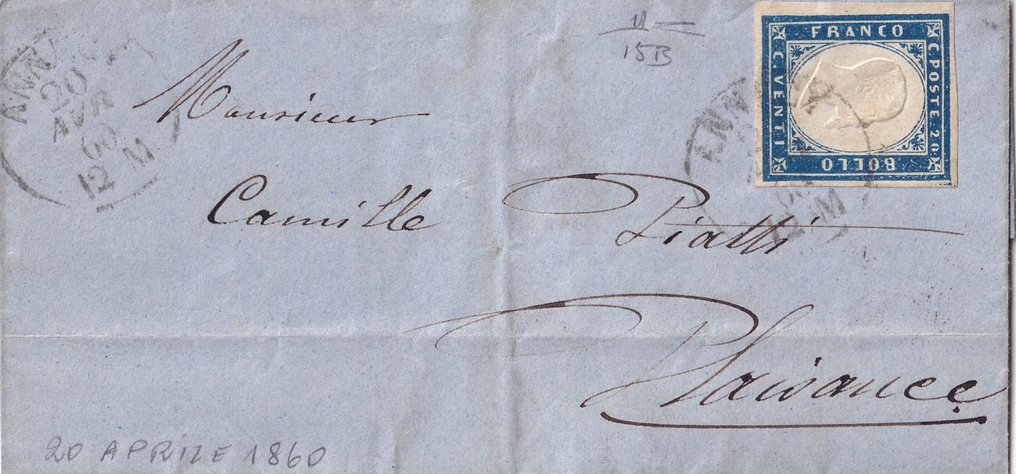 ANN
20
AVR
60
12 M
11
15B
FRANCO
C. POSTE. 20
BOLLO
C. VENTI
ANN
60
12 M
Monsieur
Camille Piatti
Plaisance
20 APRILE 1860